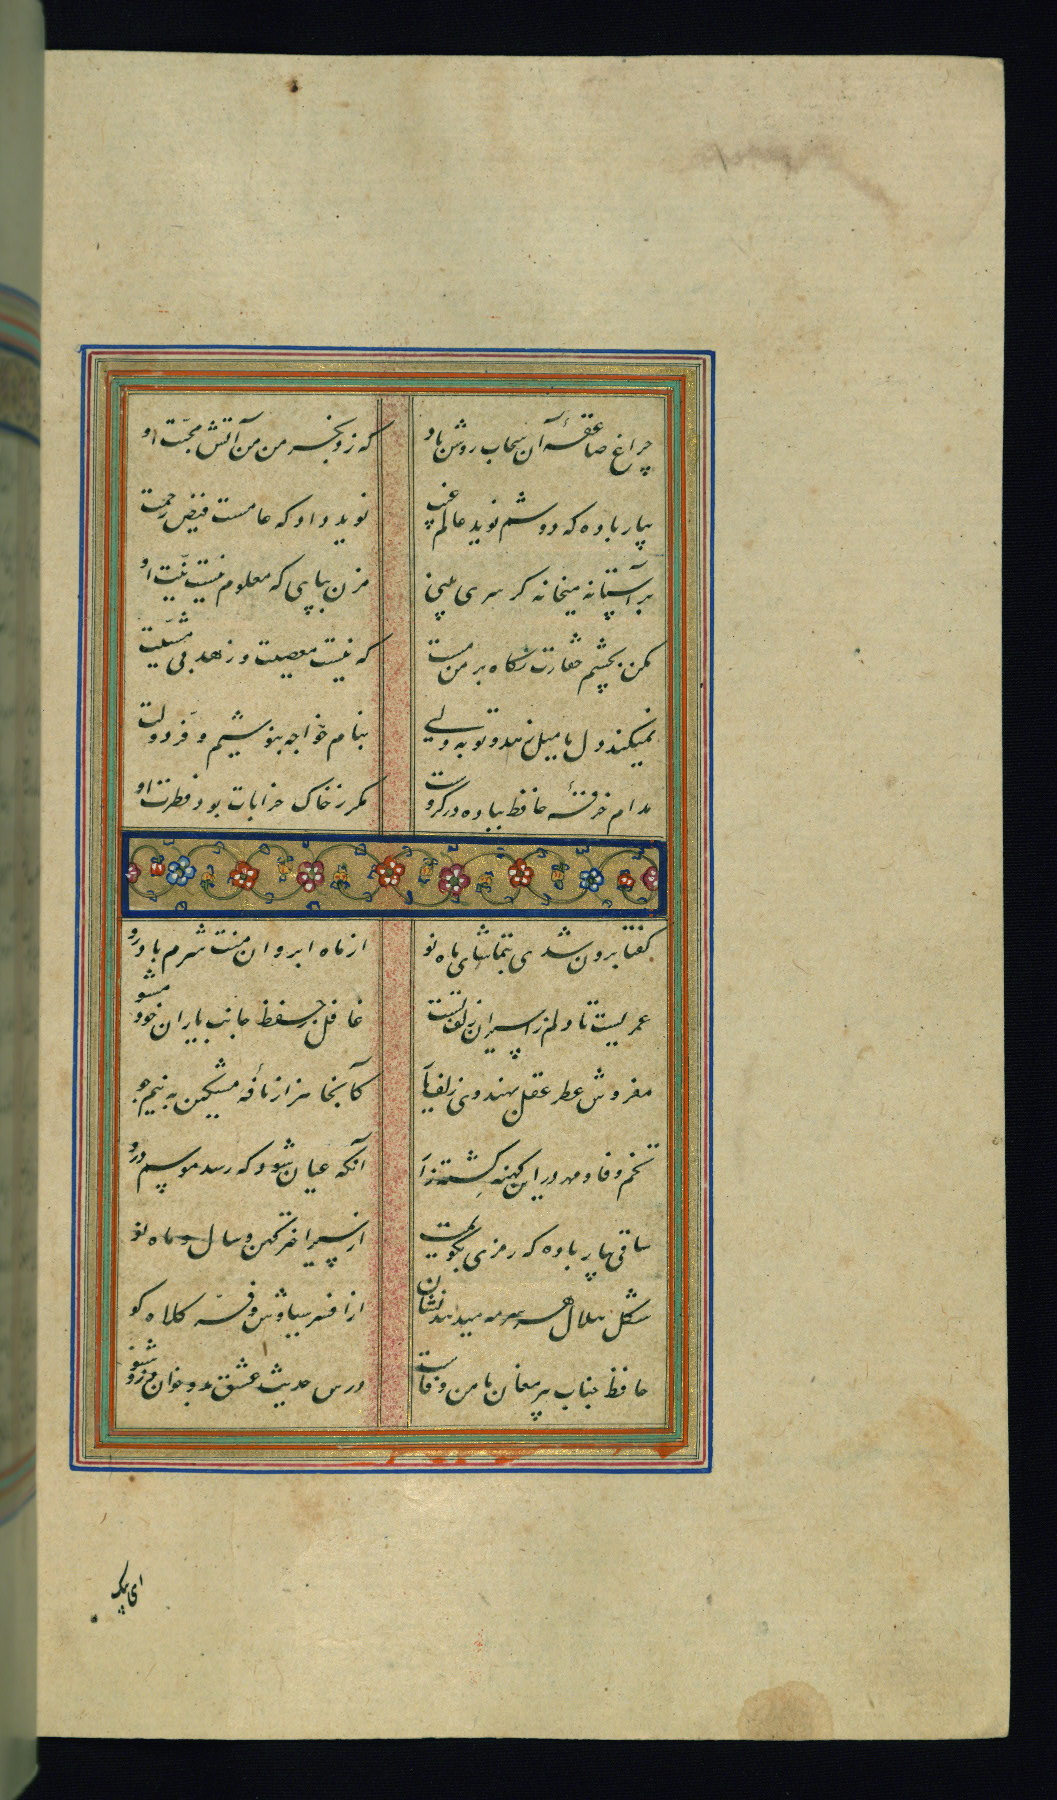 چراغ صاعقهٔ آن سحاب روشن باد که زد بخرمن من آتش محبّت او
بیار باده که دوشم نوید عالم غیب نوید داد که عامست فیض رحمت
بر آستانه میخانه گر سری بینی مزن بپای که معلوم نیست نیّت او
مکن بچشم حقارت نگاه بر من مست که نیست معصیت و زهد بی مشیّت
نمیکند دل ما میل زهد و توبه ولی بنام خواجه بنوشیم و فرّ دولت
مدام خرقهٔ حافظ بباده در گروست مگر ز خاک خرابات بود فطرت او
گفتا برون شدی بتماشای ماه نو از ماه ابروان منت شرم باد رو
عمریست تا دلم ز اسیران زلف تست غافل ز حفظ جانب یاران خود مشو
مفروش عطر عقل بهندوی زلف یار کآنجا هزار نافه مشکین به نیم جو
تخم وفا و مهر در این کهنه کشته زار آنگه عیان شود که رسد موسم درو
ساقی بیار باده که رمزی بگویمت از سیر اختر کهن و سال و ماه نو
شکل هلال هر سر مه میدهد نشان از افسر سیاوش و فرّ کلاه کو
حافظ جناب پیر مغان مامن وفاست درس حدیث عشق بدو خوان وزو شنو
ای پیک